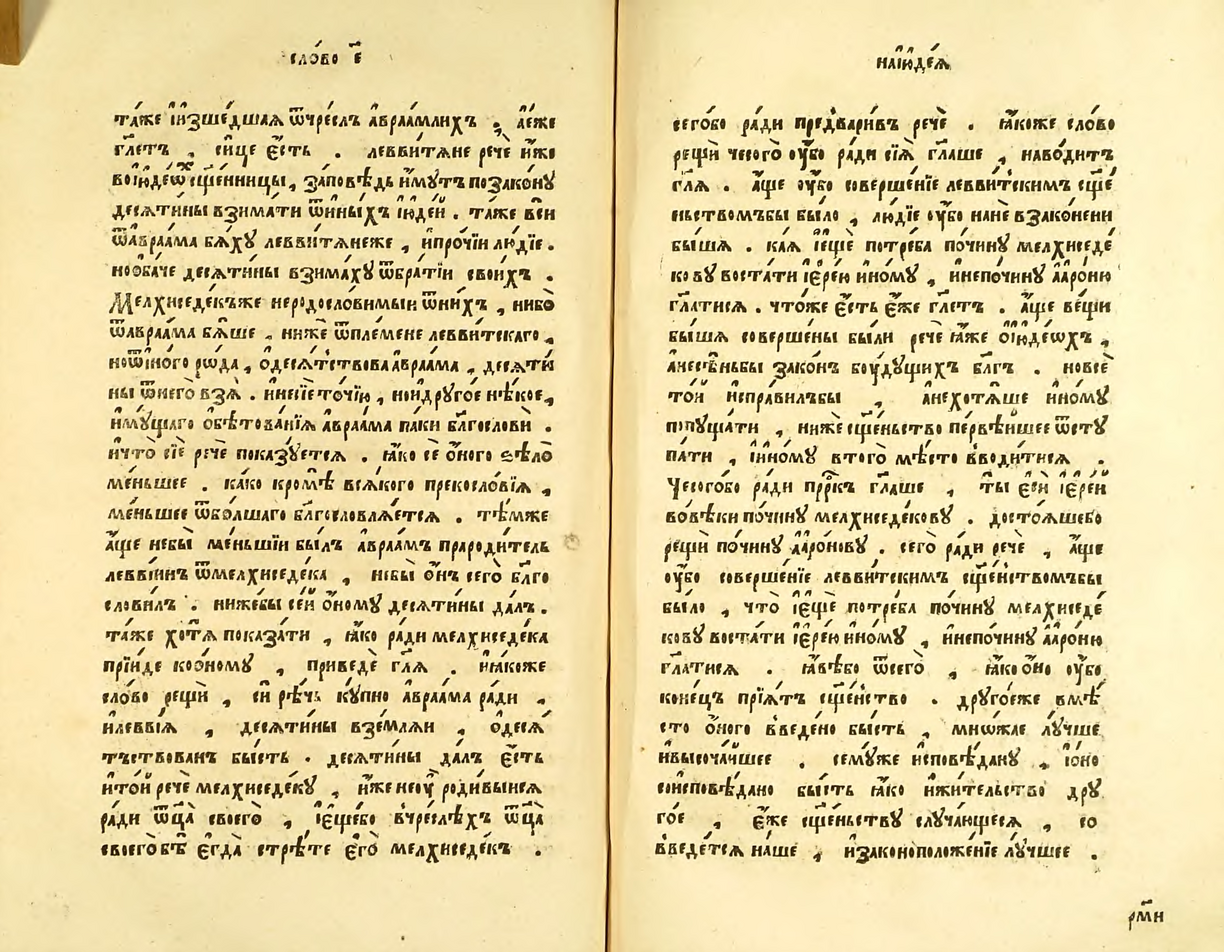 сло́во є҃
та́же и҆и҆зше́дшаѧ ѿчре́слъ а҆враа́млихъ , а҆́еже
гл҃етъ , си́це є҆́сть . леввитѧне речѐ и҆́же
во і҆ꙋде́ѡⷯ сщ҃е́нницы , за́повѣдь и҆́мꙋтъ позако́нꙋ
десѧти́ны взима́ти ѿи҆ны́хъ і҆ꙋде́й . та́же всѝ
ѿа҆враа́ма бѧ́хꙋ леввитѧнеже , и҆про́чїи лю́дїе .
но о҆ба́че десѧти́ны взима́хꙋ ѿбра́тїи свои́хъ .
Мелхиседе́къже неродосло́вимыи ѿни́хъ , ни́бо
ѿа҆враа́ма бѧ́ше , ни́же ѿпле́мене левви́тскаго ,
ноѿи҆но́го ро́да , ѻ҆десѧ́тствова а҆враа́ма , десѧти́
ны ѿнего̀ взѧ̀ . и҆несїѐ то́чїю , нои҆дрꙋго́е нѣ́кое ,
и҆мꙋ́щаго ѻ҆бѣтова́нїѧ а҆враа́ма па́ки бл҃гословѝ .
и҆что̀ сїѐ речѐ пока́зꙋетсѧ . ꙗ҆́ко сѐ ѻ҆́ного ѕѣло̀
ме́ньшее . ка́ко кромѣ̀ всѧ́кого прекосло́вїѧ ,
ме́ньшее ѿбо́лшаго бл҃гословлѧ́етсѧ . тѣ́мже
а҆́ще небы̀ ме́ньшїи бы́лъ а҆враа́мъ прароди́тель
левви́инъ ѿмелхиседе́ка , не́бы ѻ҆́нъ сего̀ бл҃го
слови́лъ . ни́жебы се́й ѻ҆́номꙋ десѧти́ны да́лъ .
та́же хотѧ̀ показа́ти , ꙗ҆́ко ра́ди мелхиседе́ка
прїи́де коо҆́номꙋ , приведѐ гл҃ѧ . и҆ꙗ҆́коже
сло́во рещѝ , си́ рѣ́чь кꙋ́пно а҆враа́ма ра́ди ,
и҆левви́ѧ , десѧти́ны взе́млѧи , ѻ҆десѧ́
тъствованъ бы́сть . десѧти́ны да́лъ є҆́сть
и҆то́й речѐ мелхиседе́кꙋ , и҆́же неоу҆̀ роди́выисѧ
ра́ди ѿц҃а̀ своего̀ , і҆є҆ще́бо вчре́слѣхъ ѿц҃а̀
своего̀ бѣ̀ є҆гда̀ стрѣ́те є҆го̀ мелхиседе́къ .
наї҆ꙋде́ѧ
сего́бо ра́ди предвари́въ речѐ . ꙗ҆́коже сло́во
рещѝ чесого̀ оу҆́бо ра́ди сїѧ̀ гл҃аше , наво́дитъ
гл҃ѧ . а҆́ще оу҆́бо соверше́нїе левви́тскимъ сщ҃е́
ньствомъбы бы́ло , лю́дїе оу҆́бо нане́ взако́нени
бы́шѧ . ка́ѧ і҆є҆щѐ потре́ба почи́нꙋ мелхиседе́
ковꙋ воста́ти і҆ере́ю и҆но́мꙋ , и҆непочи́нꙋ а҆аро́ню
гл҃атисѧ . что́же є҆́сть є҆́же гл҃етъ . а҆́ще ве́щи
бы́шѧ соверше́ны бы́ли речѐ ꙗ҆́же ѻ҆і҆ꙋде́ѡхъ ,
а҆несѣ́ньбы зако́нъ боу́дꙋщихъ бл҃гъ . но всѐ
то́й и҆спра́вилъбы , а҆нехотѧ́ше и҆но́мꙋ
пꙋпꙋща́ти , ни́же сщ҃е́ньство первѣ́йшее ѿстꙋ
па́ти , и҆и҆но́мꙋ втого̀ мѣ́сто вводи́тисѧ .
Чесого́бо ра́ди прⷪ҇ро́къ гл҃аше , ты̀ є҆сѝ і҆ере́й
вовѣ́ки почи́нꙋ мелхиседе́ковꙋ . досто́ѧшебо
рещѝ почи́нꙋ а҆аро́новꙋ . сего̀ ра́ди речѐ , а҆́ще
оу҆́бо соверше́нїе левви́тскимъ сщ҃е́нствомъбы
бы́ло , что̀ і҆є҆щѐ потре́ба почи́нꙋ мелхиседе́
ковꙋ воста́ти і҆ере́ю и҆но́мꙋ , и҆непочи́нꙋ а҆аро́ню
гл҃атисѧ . ꙗ҆́вѣбо ѿсего̀ , ꙗ҆́ко ѻ҆но̀ оу҆́бо
коне́цъ прїѧ́тъ сщ҃е́нство . дрꙋго́еже вмѣ́
сто ѻ҆́ного введено̀ бы́сть , мно́жае лꙋ́чше
и҆высоча́йшее . семꙋ́же и҆сповѣ́данꙋ , і҆о҆но̀
соисповѣ́дано бы́сть ꙗ҆́ко и҆жи́тельство дрꙋ
го́е , є҆́же сщ҃е́ньствꙋ слꙋча́ющеесѧ , со
введе́тсѧ на́ше , и҆законоположе́нїе лꙋ́чшее .
рм҃и